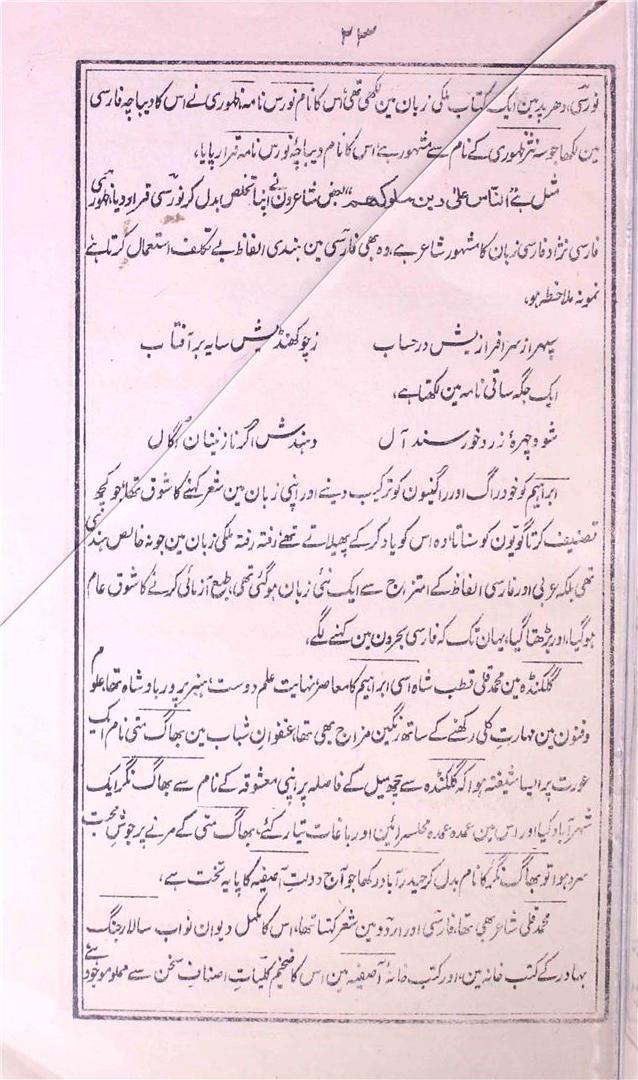 ۲۳
نورسی، دھرپد مین ایک کتاب ملکی زبان مین لکھی تھی اس کا نام نورس نامہ ظہوری نے اس کا دیباچہ فارسی
مین لکھا جو سہ نثر ظہوری کے نام سے مشہور ہے اس کا نام دیباچۂ نورس نامہ قرار پایا،
مثل ہے الناس علیٰ دین ملوکھم بعض شاعرون نے اپنا تخلص بدل کر نورسی قرار دیا، ظہوری بھی
فارسی نژاد فارسی زبان کا مشہور شاعر ہے، وہ بھی فارسی مین ہندی الفاظ بے تکلف استعمال کرتا ہے
نمونہ ملاحظہ ہو،
سپہر از سرافرازیش در حساب زچوکھنڈیش سایہ بر آفتاب
ایک جگہ ساقی نامہ مین لکھتا ہے،
شود چہرۂ زرد خورسند آل دہندش اگر نازنینان اگال
ابراہیم کو خود راگ اور راگنیون کو ترکیب دینے اور اپنی زبان مین شعر کہنے کا شوق تھا، جو کچھ
تصنیف کرتا گویّون کو سناتا وہ اس کو یاد کر کے پھیلاتے تھے، رفتہ رفتہ ملکی زبان مین جو نہ خالص ہندی
تھی بلکہ عربی اور فارسی الفاظ کے امتزاج سے ایک نئی زبان ہو گئی تھی، طبع آزمائی کرنے کا شوق عام
ہو گیا، اور بڑھتا گیا، یہان تک کہ فارسی بحرون مین کہنے لگے،
گلکنڈہ مین محمد قلی قطب شاہ اسی ابراہیم کا معاصر نہایت علم دوست، ہنر پرور بادشاہ تھا، علوم
و فنون مین مہارتِ کلی رکھنے کے ساتھ رنگین مزاج بھی تھا، عنفوانِ شباب مین بھاگ متی نام ایک
عورت پر ایسا شیفتہ ہوا کہ گلکنڈہ سے چھ میل کے فاصلہ پر اپنی معشوقہ کے نام سے بھاگ نگر ایک
شہر آباد کیا اور اس مین عمدہ عمدہ محلسرائین اور باغات تیار کئے، بھاگ متی کے مرنے پر جوشِ محبت
سرد ہوا تو بھاگ نگر کا نام بدل کر حیدرآباد رکھا جو آج دولتِ آصفیہ کا پایہ تخت ہے،
محمد قلی شاعر بھی تھا، فارسی اور اردو مین شعر کہتا تھا، اس کا مکمل دیوان نواب سالار جنگ
بہادر کے کتب خانہ مین، اور کتب خانۂ آصفیہ مین اس کا ضخیم کلیاتِ اصنافِ سخن سے مملو موجود ہے